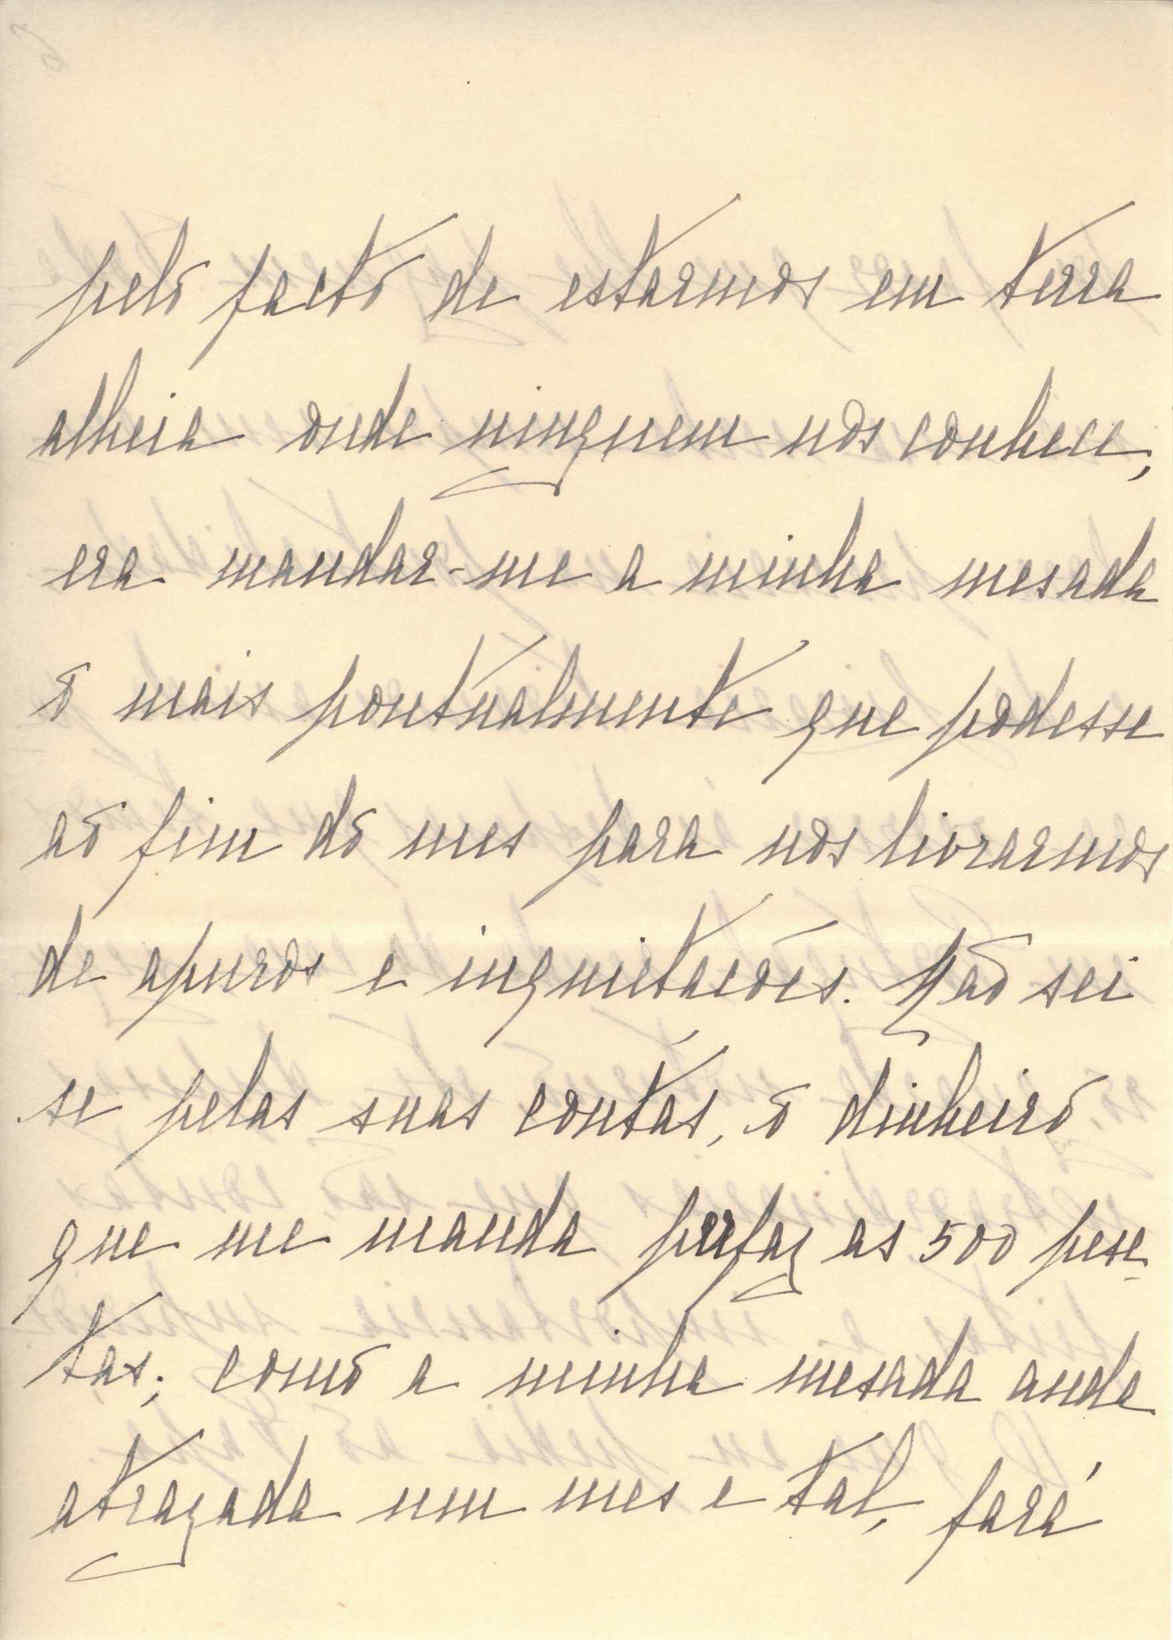 pelo facto de estarmos em terra
alheia onde ninguem nos conhece,
era mandar-me a minha mesada
o mais pontualmente que podesse
ao fim do mes para nos livrarmos
de apuros e inquietacões. Não sei
se pelas suas contas, o dinheiro
que me manda perfaz as 500 pese-
tas; como a minha mesada anda
atrazada um mes e tal, fará